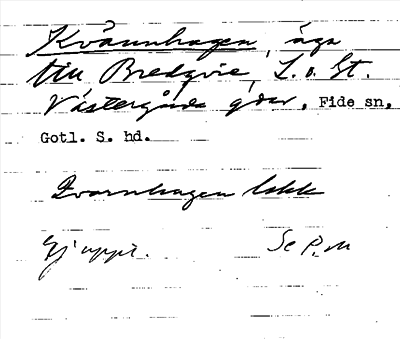 Kvännhagen, äga
till Bredqvie, L. o. St.
Västergårds gdar, Fide sn,
Gotl. S. hd.
Qvarnhagen
Ej uppt. Se P.m